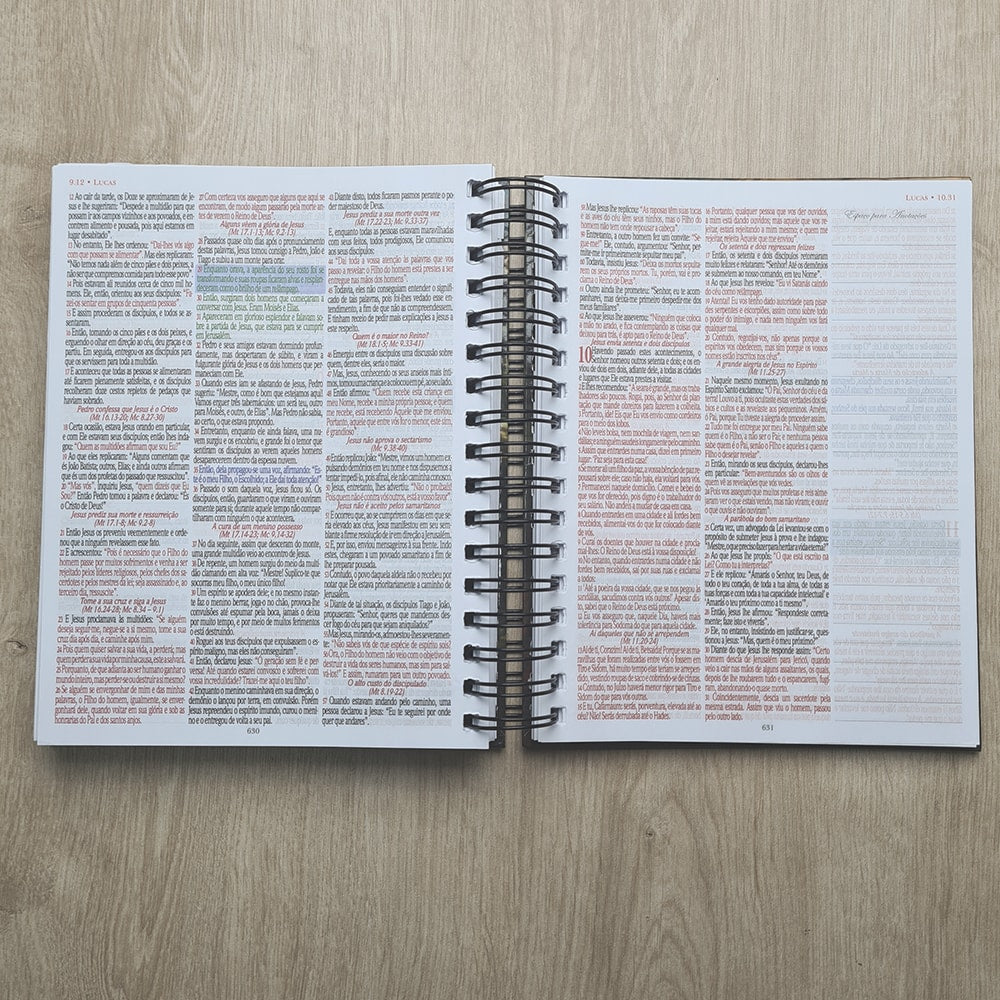 9.12 • LUCAS
12 Ao cair da tarde, os Doze se aproximaram de Je-
sus e lhe sugeriram: "Despede a multidão para que
possam ir aos campos vizinhos e aos povoados, e en-
contrem alimento e pousada, pois aqui estamos em
lugar desabitado".
13 No entanto, Ele lhes ordenou: "Dai-lhes vós algo
com que possam se alimentar". Mas eles replicaram:
"Não temos nada além de cinco pães e dois peixes, a
não ser que compremos comida para todo esse povo".
14 Pois estavam ali reunidos cerca de cinco mil ho-
mens. Ele, então, orientou aos seus discípulos: "Fa-
zei-os sentar em grupos de cinquenta pessoas".
15 E assim procederam os discípulos, e todos se as-
sentaram.
16 Então, tomando os cinco pães e os dois peixes, e
erguendo o olhar em direção ao céu, deu graças e os
partiu. Em seguida, entregou-os aos discípulos para
que os servissem para toda a multidão.
17 E aconteceu que todas as pessoas se alimentaram
até ficarem plenamente satisfeitas, e os discípulos
recolheram doze cestos repletos de pedaços que
haviam sobrado.
Pedro confessa que Jesus é o Cristo
(Mt 16.13-20; Mc 8.27-30)
18 Certa ocasião, estava Jesus orando em particular
e com Ele estavam seus discípulos; então lhes inda-
gou: "Quem as multidões afirmam que sou Eu?"
19 Ao que eles replicaram: "Alguns comentam que
és João Batista; outros, Elias; e ainda outros afirmam
que és um dos profetas do passado que ressuscitou".
20 "Mas vós", inquiriu Jesus, "quem dizeis que Eu
Sou?" Então Pedro tomou a palavra e declarou: "És
o Cristo de Deus!"
Jesus prediz sua morte e ressurreição
(Mt 17.1-8; Mc 9.2-8)
21 Então Jesus os preveniu veementemente e orde-
nou que a ninguém revelassem esse fato.
22 E acrescentou: "Pois é necessário que o Filho do
homem passe por muitos sofrimentos e venha a ser
rejeitado pelos líderes religiosos, pelos chefes dos sa-
cerdotes e pelos mestres da lei; seja assassinado e, ao
terceiro dia, ressuscite".
Tome a sua cruz e siga a Jesus
(Mt 16.24-28; Mc 8.34 – 9.1)
23 E Jesus proclamava às multidões: "Se alguém
deseja seguir-me, negue-se a si mesmo, tome a sua
cruz dia após dia, e caminhe após mim.
24 Pois quem quiser salvar a sua vida, a perderá; mas
quem perder a sua vida por minha causa, este a salvará.
25 Portanto, de que adianta ao ser humano ganhar o
mundo inteiro, mas perder-se ou destruir a si mesmo?
26 Se alguém se envergonhar de mim e das minhas
palavras, o Filho do homem, igualmente, se enver-
gonhará dele, quando voltar em sua glória e sob as
honrarias do Pai e dos santos anjos.
27 Com certeza vos asseguro que alguns que aqui se
encontram, de modo algum passarão pela morte an-
tes de verem o Reino de Deus".
Alguns vêem a glória de Jesus
(Mt 17.1-13; Mc 9.2-13)
28 Passados quase oito dias após o pronunciamento
destas palavras, Jesus tomou consigo a Pedro, João e
Tiago e subiu a um monte para orar.
29 Enquanto orava, a aparência do seu rosto foi se
transformando e suas roupas ficaram alvas e resplan-
decentes, como o brilho de um relâmpago.
30 Então, surgiram dois homens que começaram a
conversar com Jesus. Eram Moisés e Elias.
31 Apareceram em glorioso esplendor e falavam so-
bre a partida de Jesus, que estava para se cumprir
em Jerusalém.
32 Pedro e seus amigos estavam dormindo profun-
damente, mas despertaram de súbito, e viram a
fulgurante glória de Jesus e os dois homens que per-
maneciam com Ele.
33 Quando estes iam se afastando de Jesus, Pedro
sugeriu: "Mestre, como é bom que estejamos aqui!
Vamos erguer três tabernáculos: um será teu, outro
para Moisés, e outro, de Elias". Mas Pedro não sabia,
ao certo, o que estava propondo.
34 Entretanto, enquanto ele ainda falava, uma nu-
vem surgiu e os encobriu, e grande foi o temor que
sentiram os discípulos ao verem aqueles homens
desaparecerem dentro da espessa nuvem.
35 Então, dela propagou-se uma voz, afirmando: "Es-
te é o meu Filho, o Escolhido; a Ele dai toda atenção!"
36 Passado o som daquela voz, Jesus ficou só. Os
discípulos, então, guardaram o que viram e ouviram
somente para si; durante aquele tempo não compar-
tilharam com ninguém o que acontecera.
A cura de um menino possesso
(Mt 17.14-23; Mc 9.14-32)
37 No dia seguinte, assim que desceram do monte,
uma grande multidão veio ao encontro de Jesus.
38 De repente, um homem surgiu do meio da multi-
dão clamando em alta voz: "Mestre! Suplico-te que
socorras meu filho, o meu único filho!
39 Um espírito se apodera dele, e no mesmo instan-
te faz o menino berrar, joga-o no chão, provoca-lhe
convulsões até espumar pela boca, jamais o deixa
por muito tempo, e por meio de muitos ferimentos
o está destruindo.
40 Roguei aos teus discípulos que expulsassem o es-
pírito maligno, mas eles não conseguiram".
41 Então, declarou Jesus: "Ó geração sem fé e per-
versa! Até quando estarei convosco e sofrerei com
vossa incredulidade? Trazei-me aqui o teu filho".
42 Enquanto o menino caminhava em sua direção, o
demônio o lançou por terra, em convulsão. Porém
Jesus repreendeu o espírito imundo, curou o meni-
no e o entregou de volta a seu pai.
43 Diante disto, todos ficaram pasmos perante o po-
der majestoso de Deus.
Jesus prediz a sua morte outra vez
(Mt 17.22-23; Mc 9.33-37)
E, enquanto todas as pessoas estavam maravilhadas
com seus feitos, todos prodigiosos, Ele comunicou
aos seus discípulos:
44 "Dai toda a vossa atenção às palavras que vos
passo a revelar: o Filho do homem está prestes a ser
entregue nas mãos dos homens".
45 Todavia, eles não conseguiam entender o signifi-
cado de tais palavras, pois foi-lhes vedado esse en-
tendimento, a fim de que não as compreendessem.
E tinham receio de pedir mais explicações a Jesus a
este respeito.
Quem é o maior no Reino?
(Mt 18.1-5; Mc 9.33-41)
46 Emergiu entre os discípulos uma discussão sobre
quem, dentre eles, seria o maior.
47 Mas, Jesus, conhecendo os seus anseios mais ínti-
mos, tomou uma criança e a colocou em pé, ao seu lado.
48 Então afirmou: "Quem recebe esta criança em
meu Nome, recebe a minha própria pessoa; e quem
me recebe, está recebendo Aquele que me enviou.
Portanto, aquele que entre vós for o menor, este sim,
é grandioso".
Jesus não aprova o sectarismo
(Mc 9.38-40)
49 Então replicou João: "Mestre, vimos um homem ex-
pulsando demônios em teu nome e nos dispusemos a
tentar impedi-lo, pois afinal, ele não caminha conosco.
50 Jesus, entretanto, lhes advertiu: "Não o proibais!
Pois quem não é contra vós outros, está a vosso favor".
Jesus não é aceito pelos samaritanos
51 Ocorreu que, ao se cumprirem os dias em que se-
ria elevado aos céus, Jesus manifestou em seu sem-
blante a firme resolução de ir em direção a Jerusalém.
52 E, por isso, enviou mensageiros à sua frente. Indo
estes, chegaram a um povoado samaritano a fim de
lhe preparar pousada.
53 Contudo, o povo daquela aldeia não o recebeu por
notar que Ele estava prioritariamente a caminho de
Jerusalém.
54 Diante de tal situação, os discípulos Tiago e João,
propuseram: "Senhor, queres que mandemos des-
cer fogo do céu para que sejam aniquilados?"
55 Mas Jesus, mirando-os, admoestou-lhes severamen-
te: "Não sabeis vós de que espécie de espírito sois!
56 Ora, o Filho do homem não veio com o objetivo de
destruir a vida dos seres humanos, mas sim para sal-
vá-los!" E assim, rumaram para um outro povoado.
O alto custo do discipulado
(Mt 8.19-22)
57 Quando estavam andando pelo caminho, uma
pessoa declarou a Jesus: "Eu te seguirei por onde
quer que andares".
630
LUCAS • 10.31
Espaço para Anotações
58 Mas Jesus lhe replicou: "As raposas têm suas tocas
e as aves do céu têm seus ninhos, mas o Filho do
homem não tem onde repousar a cabeça".
59 Entretanto, a outro homem fez um convite: "Se-
gue-me!" Ele, contudo, argumentou: "Senhor, per-
mite-me ir primeiramente sepultar meu pai".
60 Todavia, insistiu Jesus: "Deixa os mortos sepulta-
rem os seus próprios mortos. Tu, porém, vai e pro-
clama o Reino de Deus".
61 Outro ainda lhe prometeu: "Senhor, eu te acom-
panharei, mas deixa-me primeiro despedir-me dos
meus familiares".
62 Ao que Jesus lhe asseverou: "Ninguém que coloca
a mão no arado, e fica contemplando as coisas que
deixou para trás, é apto para o Reino de Deus".
Jesus envia setenta e dois discípulos
10 Havendo passado estes acontecimentos, o
Senhor nomeou outros setenta e dois; e os en-
viou de dois em dois, adiante dele, a todas as cidades
e lugares que Ele estava prestes a visitar.
2 E lhes recomendou: "A seara é grande, mas os traba-
lhadores são poucos. Rogai, pois, ao Senhor da plan-
ação que mande ceifeiros para fazerem a colheita.
3 Portanto, ide! Eis que Eu vos envio como cordeiros
para o meio dos lobos.
4 Não leveis bolsa, nem mochila de viagem, nem san-
dálias; e a ninguém saudeis longamente pelo caminho.
5 Assim que entrardes numa casa, dizei em primeiro
lugar: 'Paz seja para esta casa!'
6 Se morar ali um filho da paz, a vossa bênção de paz re-
pousará sobre ele; caso não haja, ela voltará para vós.
7 Permanecei naquele domicílio. Comei e bebei do
que vos for oferecido, pois digno é o trabalhador do
seu salário. Não andeis a mudar de casa em casa.
8 Quando entrardes em uma cidade e ali fordes bem
recebidos, alimentai-vos do que for colocado diante
de vós.
9 Curai os doentes que houver na cidade e procla-
mai-lhes: O Reino de Deus está à vossa disposição!
10 No entanto, quando entrardes numa cidade e não
fordes bem recebidos, saí por suas ruas e exclamai
a todos:
11 'Até a poeira da vossa cidade, que se nos pegou às
sandálias, sacudimos contra vós outros!' Apesar dis-
to, sabei que o Reino de Deus está próximo.
12 Eu vos asseguro que, naquele Dia, haverá mais
tolerância para Sodoma do que para aquela cidade.
Ai daqueles que não se arrependem
(Mt 11.20-24)
13 Ai de ti, Corazim! Ai de ti, Betsaida! Porque se as ma-
ravilhas que foram realizadas entre vós o fossem em
Tiro e Sidom, há muito tempo elas teriam se arrepen-
dido, vestindo roupas de saco e cobrindo-se de cinzas.
14 Contudo, no Juízo haverá menor rigor para Tiro e
Sidom do que para vós outros.
15 E tu, Cafarnaum: serás, porventura, elevada até ao
céu? Não! Serás derrubada até o Hades.
16 Portanto, qualquer pessoa que vos der ouvidos,
a mim está dando ouvidos; mas aquele que vos re-
jeitar, estará rejeitando a mim mesmo; e quem me
rejeitar, rejeita Aquele que me enviou".
Os setenta e dois regressam felizes
17 Então, os setenta e dois discípulos retornaram
muito felizes e relataram: "Senhor! Até os demônios
se submetem ao nosso comando, em teu Nome".
18 Ao que Jesus lhes revelou: "Eu vi Satanás caindo
do céu como relâmpago.
19 Atentai! Eu vos tenho dado autoridade para pisar-
des serpentes e escorpiões, assim como sobre todo
o poder do inimigo, e nada nem ninguém vos fará
qualquer mal.
20 Contudo, regozijai-vos, não apenas porque os
espíritos vos obedecem, mas sim porque os vossos
nomes estão inscritos nos céus".
A grande alegria de Jesus no Espírito
(Mt 11.25-27)
21 Naquele mesmo momento, Jesus exultando no
Espírito Santo exclamou: "Ó Pai, Senhor do céu e da
terra! Louvo a ti, pois ocultaste estas verdades dos sá-
bios e cultos e as revelaste aos pequeninos. Amém,
ó Pai, porque Tu tiveste a alegria de proceder assim.
22 Tudo me foi entregue por meu Pai. Ninguém sabe
quem é o Filho, a não ser o Pai; e nenhuma pessoa
sabe quem é o Pai, senão o Filho e aquele a quem o
Filho o desejar revelar".
23 Então, mirando os seus discípulos, declarou-lhes
em particular: "Bem-aventurados são os olhos que
vêem o que vós vedes.
24 Pois vos asseguro que muitos profetas e reis anela-
ram ver o que estais vendo, mas não viram; e ouvir
o que ouvis e não ouviram".
A parábola do bom samaritano
25 Certa vez, um advogado da Lei levantou-se com o
propósito de submeter Jesus à prova e lhe indagou:
"Mestre, o que preciso fazer para herdar a vida eterna?"
26 Ao que Jesus lhe propôs: "O que está escrito na
Lei? Como tu a interpretas?"
27 E ele replicou: "'Amarás o Senhor, teu Deus, de
todo o teu coração, de toda a tua alma, de todas as
tuas forças e com toda a tua capacidade intelectual' e
'Amarás o teu próximo como a ti mesmo'".
28 Então, Jesus lhe afirmou: "Respondeste correta-
mente; faze isto e viverás".
29 Ele, no entanto, insistindo em justificar-se, ques-
tionou a Jesus: "Mas, quem é o meu próximo?"
30 Diante do que Jesus lhe responde assim: "Certo
homem descia de Jerusalém para Jericó, quando
veio a cair nas mãos de alguns assaltantes, os quais,
depois de lhe roubarem tudo e o espancarem, fugi-
ram, abandonando-o quase morto.
31 Coincidentemente, descia um sacerdote pela
mesma estrada. Assim que viu o homem, passou
pelo outro lado.
631